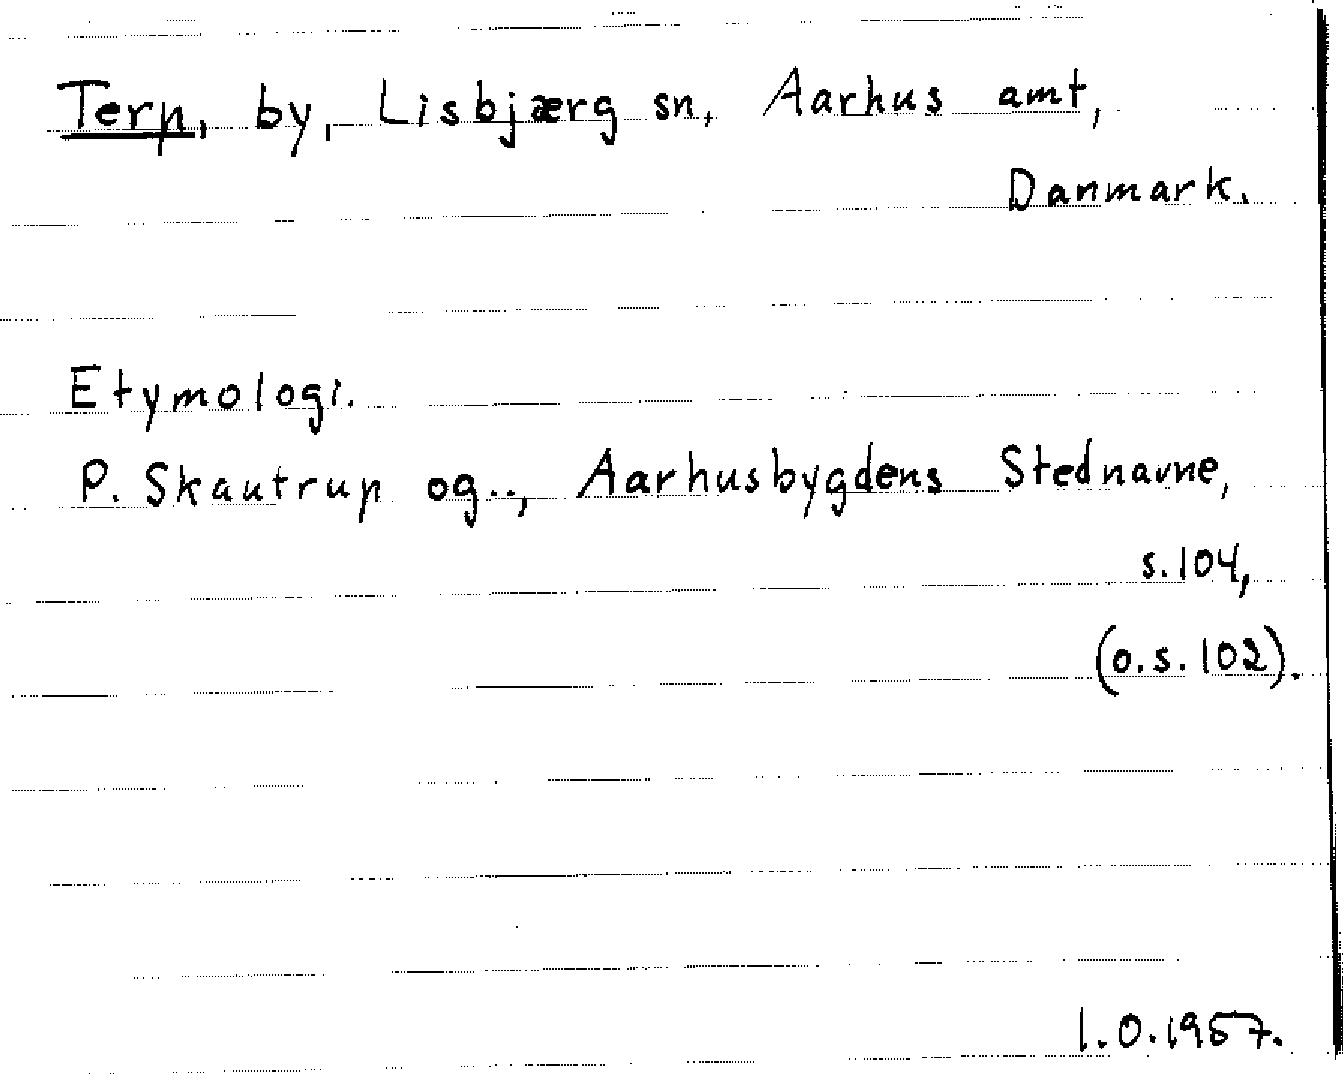 Terp, by, Lisbjærg sn, Aarhus amt,
Danmark.
Etymologi.
P. Skautrup og.., Aarhusbygdens Stednavne,
s.104,
(o.s.102).
I.O.1957.